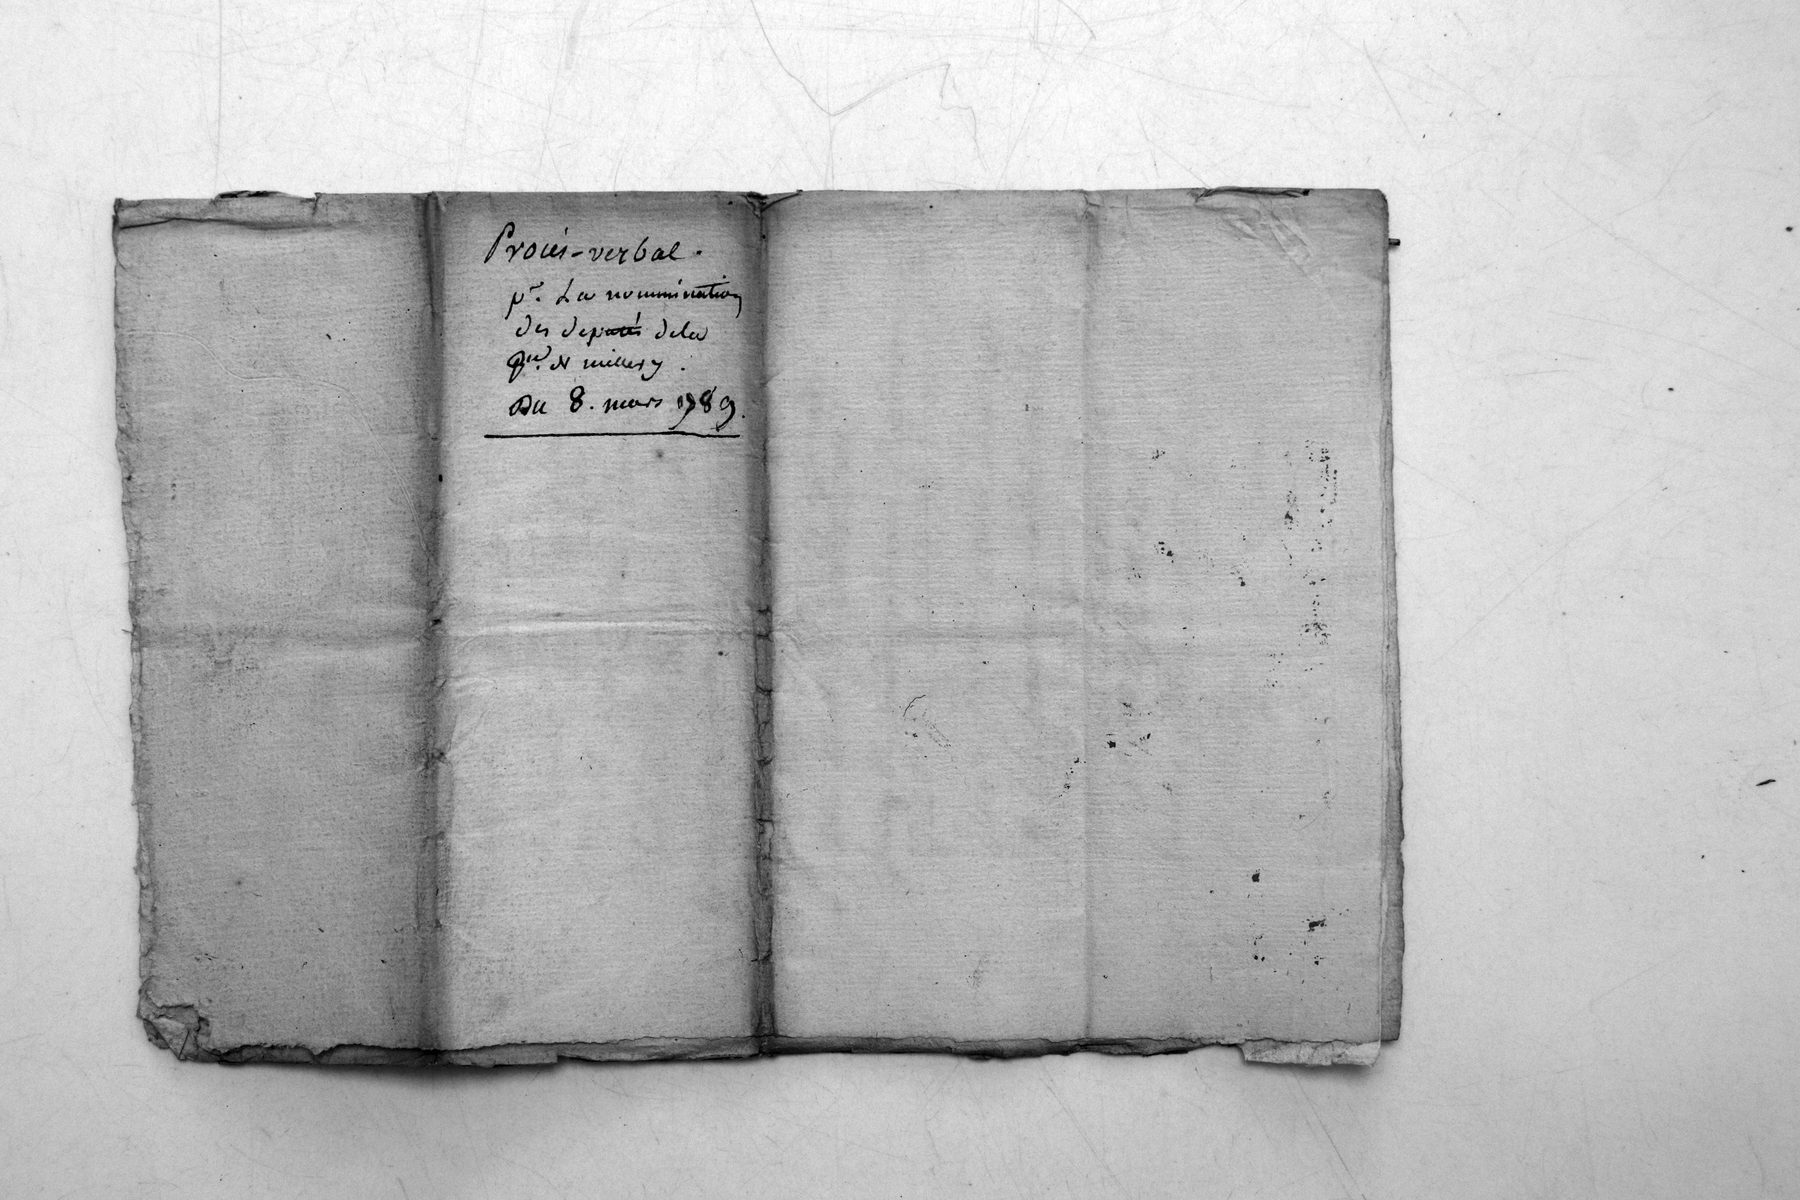 Procès-verbal.
pr. La nommination
des deputés dela
psse. de millery.
Du 8. mars 1789.